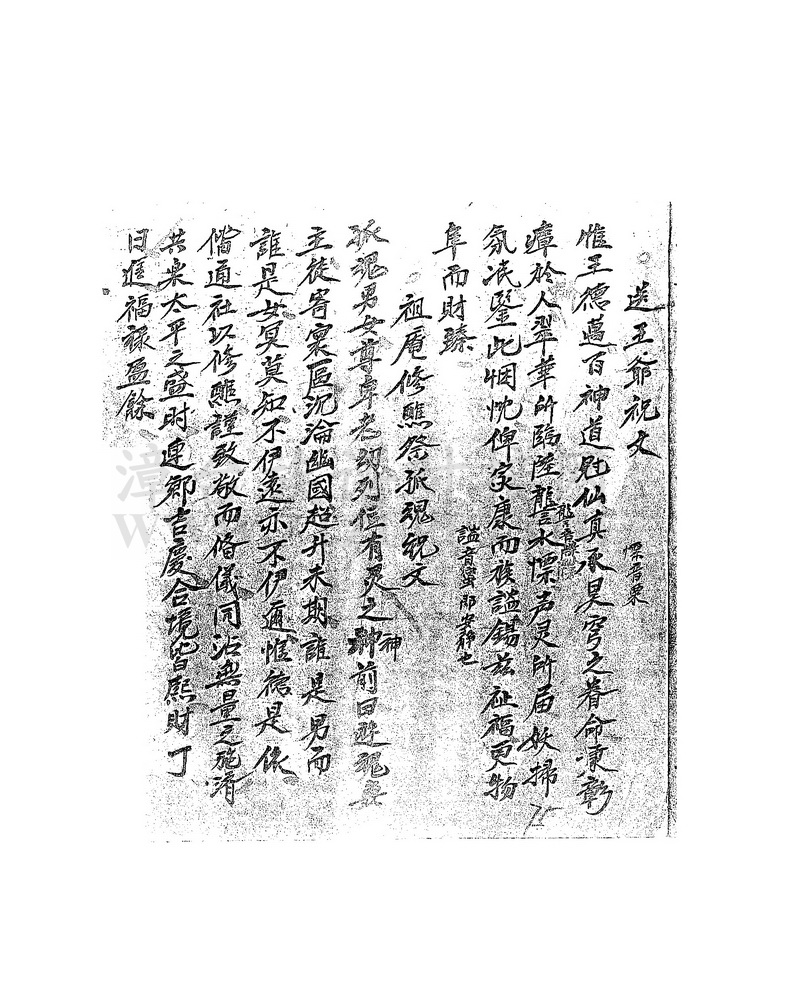 送王爺祝文
慄音栗
惟王德邁百神道冠仙真承昊穹之眷命凜彰
瘴於人翠華所臨陸讋水慄声灵所届妖掃
氛冺鑒此悃忱俾家康而族謐錫兹祉福更物
謐音蜜即安静也
阜而財臻
祖庵修醮祭孤魂祝文
孤魂男女尊卑老幼列位有灵之神前曰遊魂無
主徒寄寰區沉淪幽國超升未期誰是男而
誰是女冥莫知不伊遠亦不伊邇惟德是依
偕通社以修醮謹致敬而備儀同沾無量之施湑
共樂太平之盛时連鄉吉慶合境皆熙財丁
日進福祿盈餘